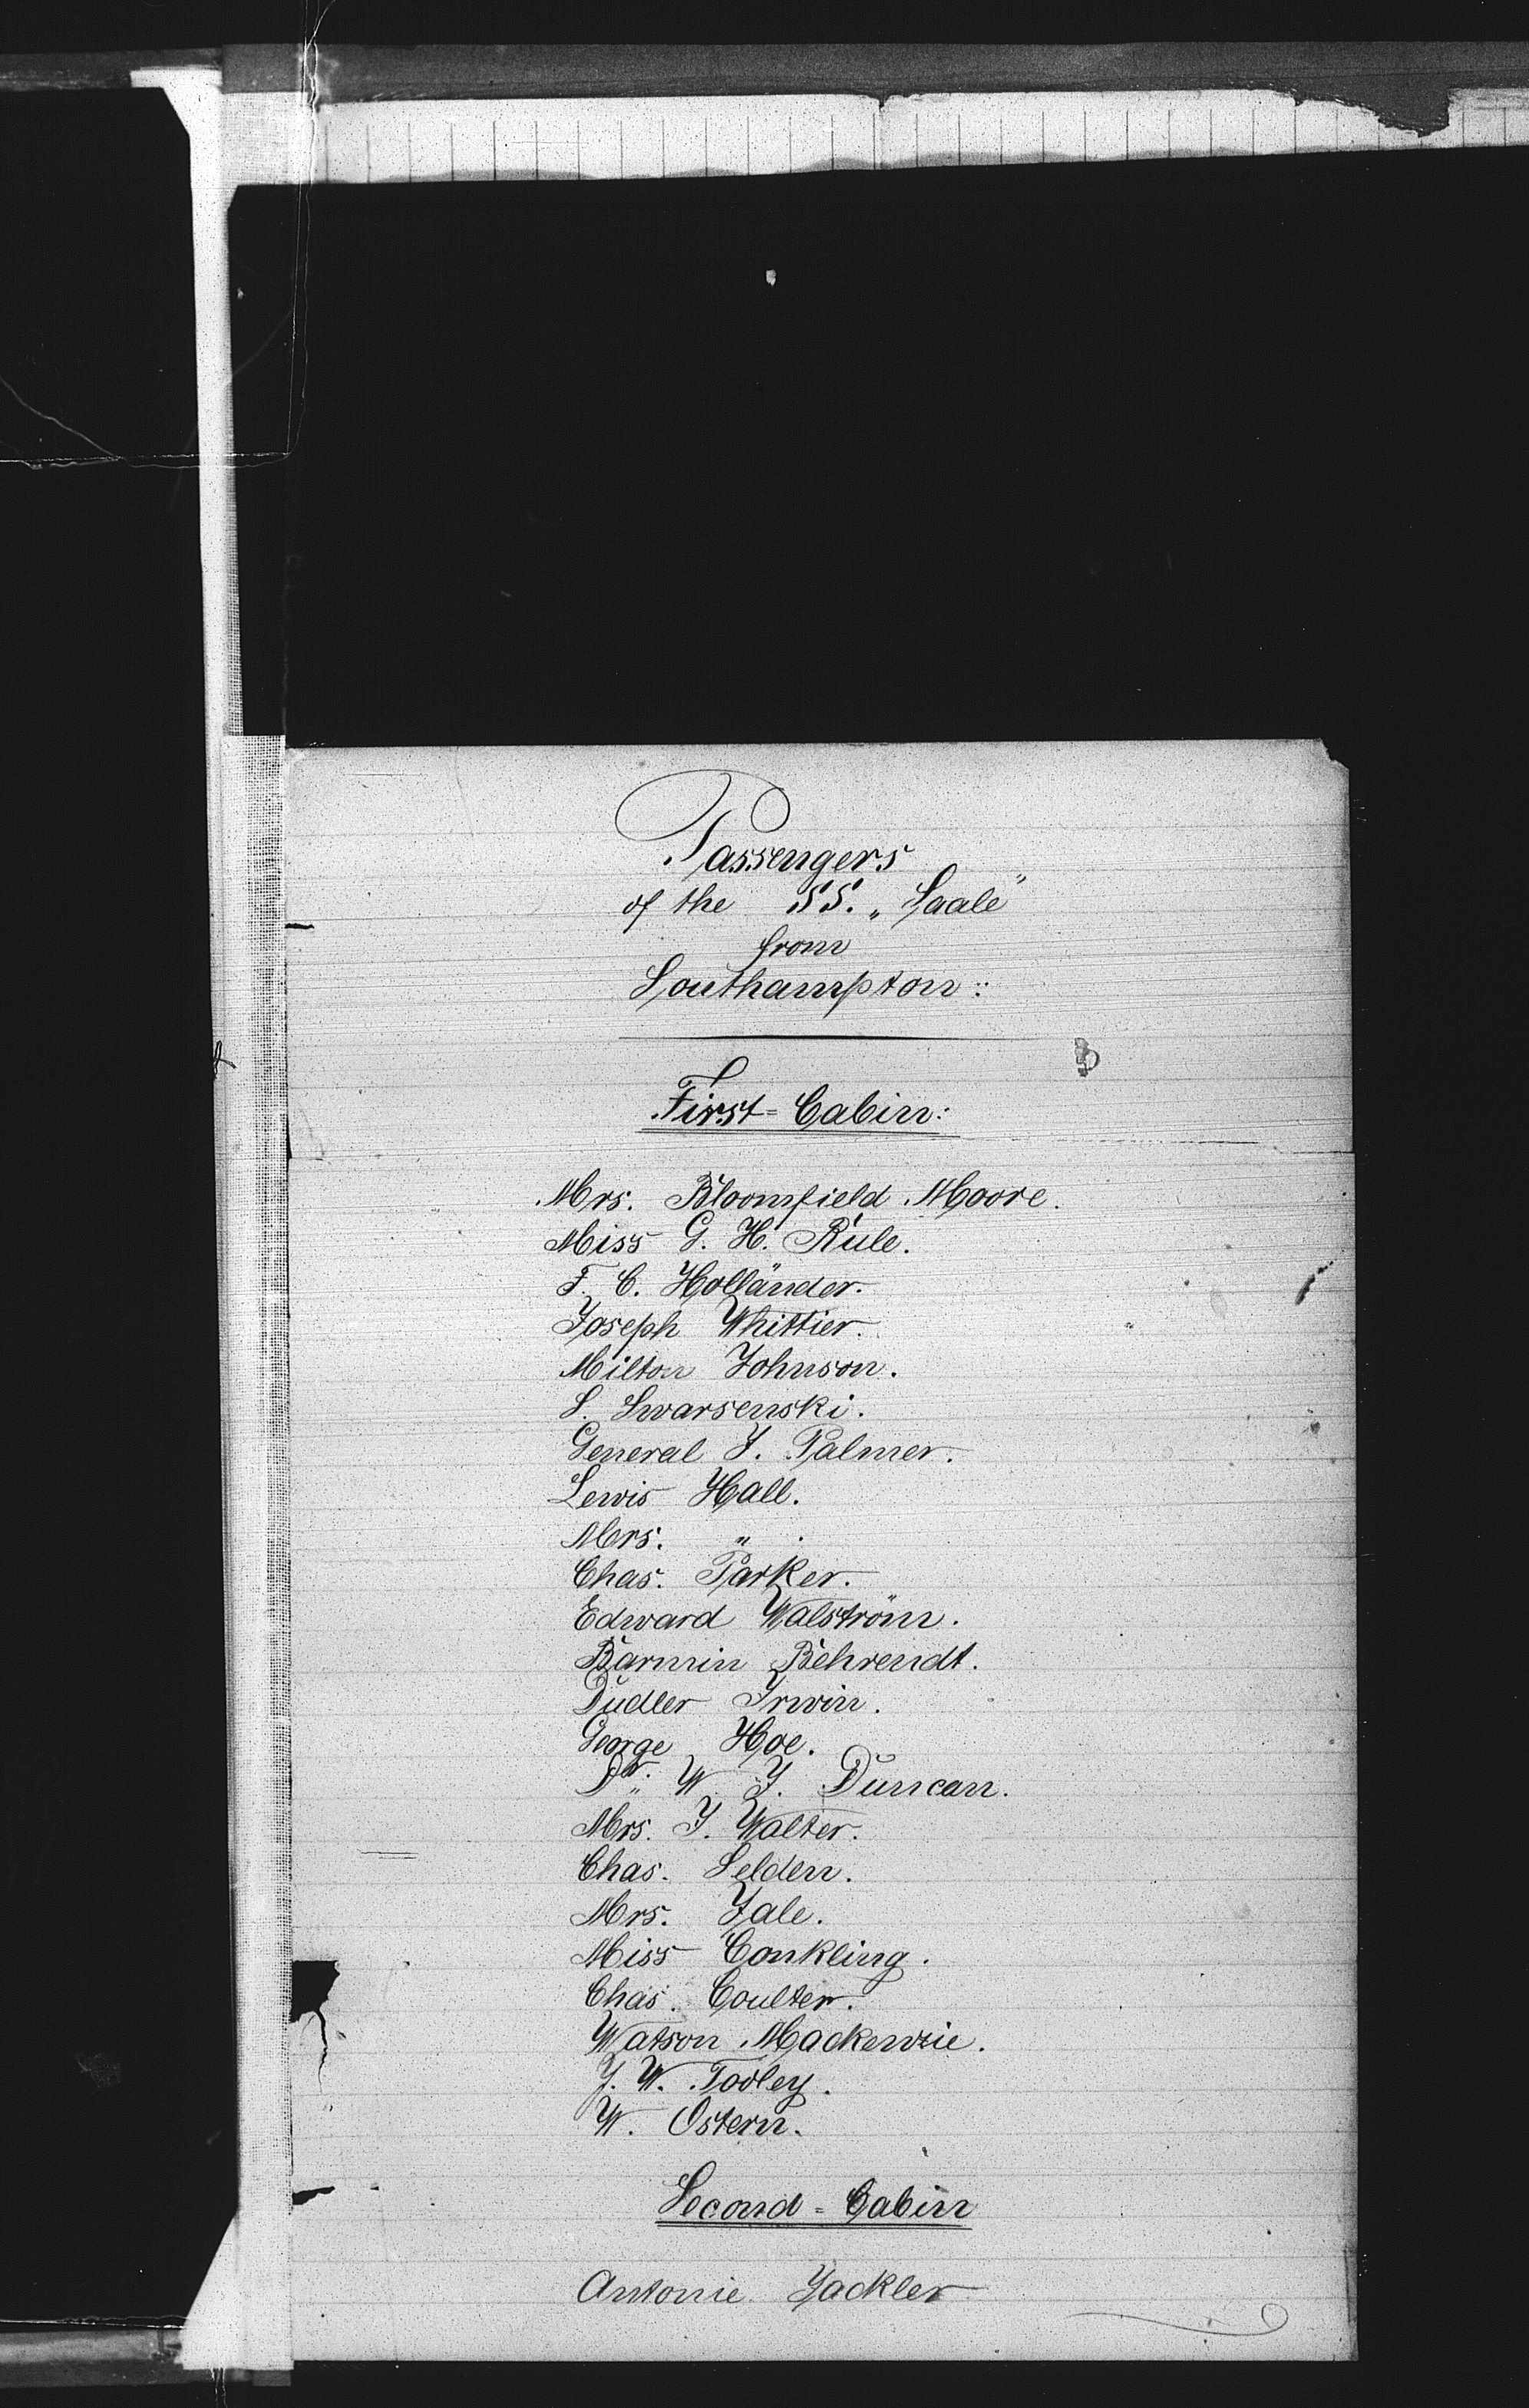 Passengers
of the SS. „Saale"
from
Southampton:
First=Cabin:
Mrs. Bloomfield Moore.
Miss G. H. Rule.
F. C. Holländer.
Joseph Whittier.
Milton Johnson.
S. Swarsenski.
General J. Palmer.
Lewis Hall.
Mrs. " .
Chas. Parker.
Edward Walström.
Barmin Behrendt.
Dudler Irwin.
George Hoe.
Dr. W. J. Duncan.
Mrs. J. Walter.
Chas. Selden.
Mrs. Yale.
Miss Conkling.
Chas. Coulter.
Watson Mackenzie.
J. W. Tooley.
W. Ostern.
Second=Cabin
Antonie Jackler